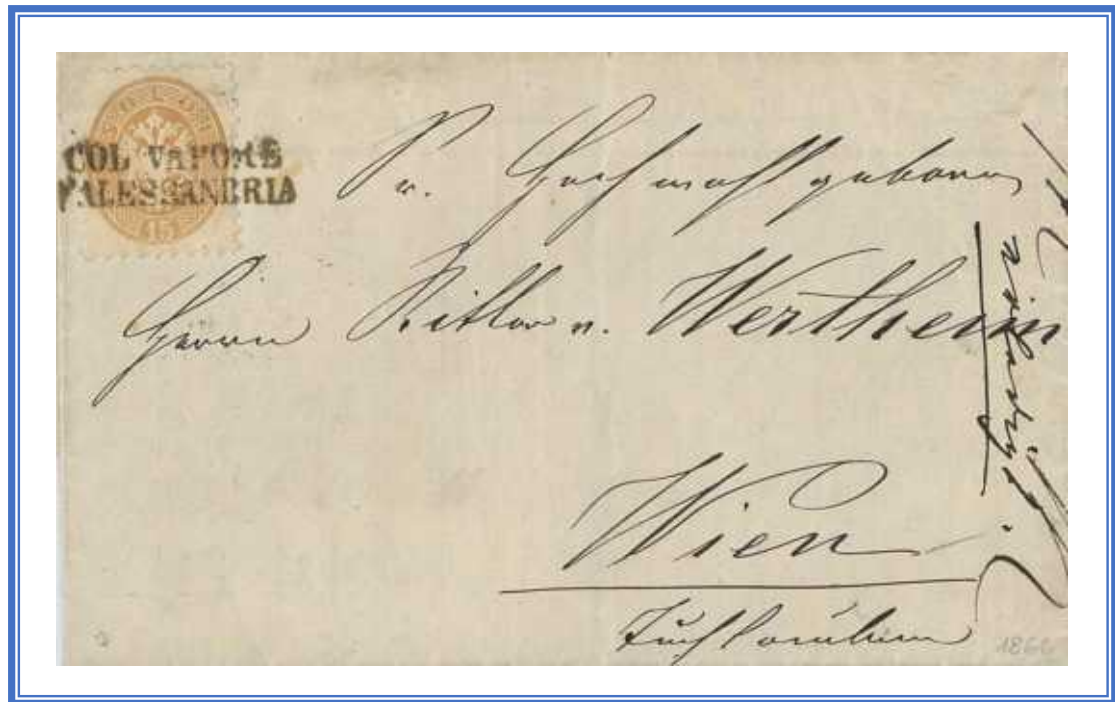 15
COL VAPORE
D'ALESSANDRIA
Sr. Hochwohlgeboren
Herrn Ritter v. Wertheim
Wien
Tuchlauben